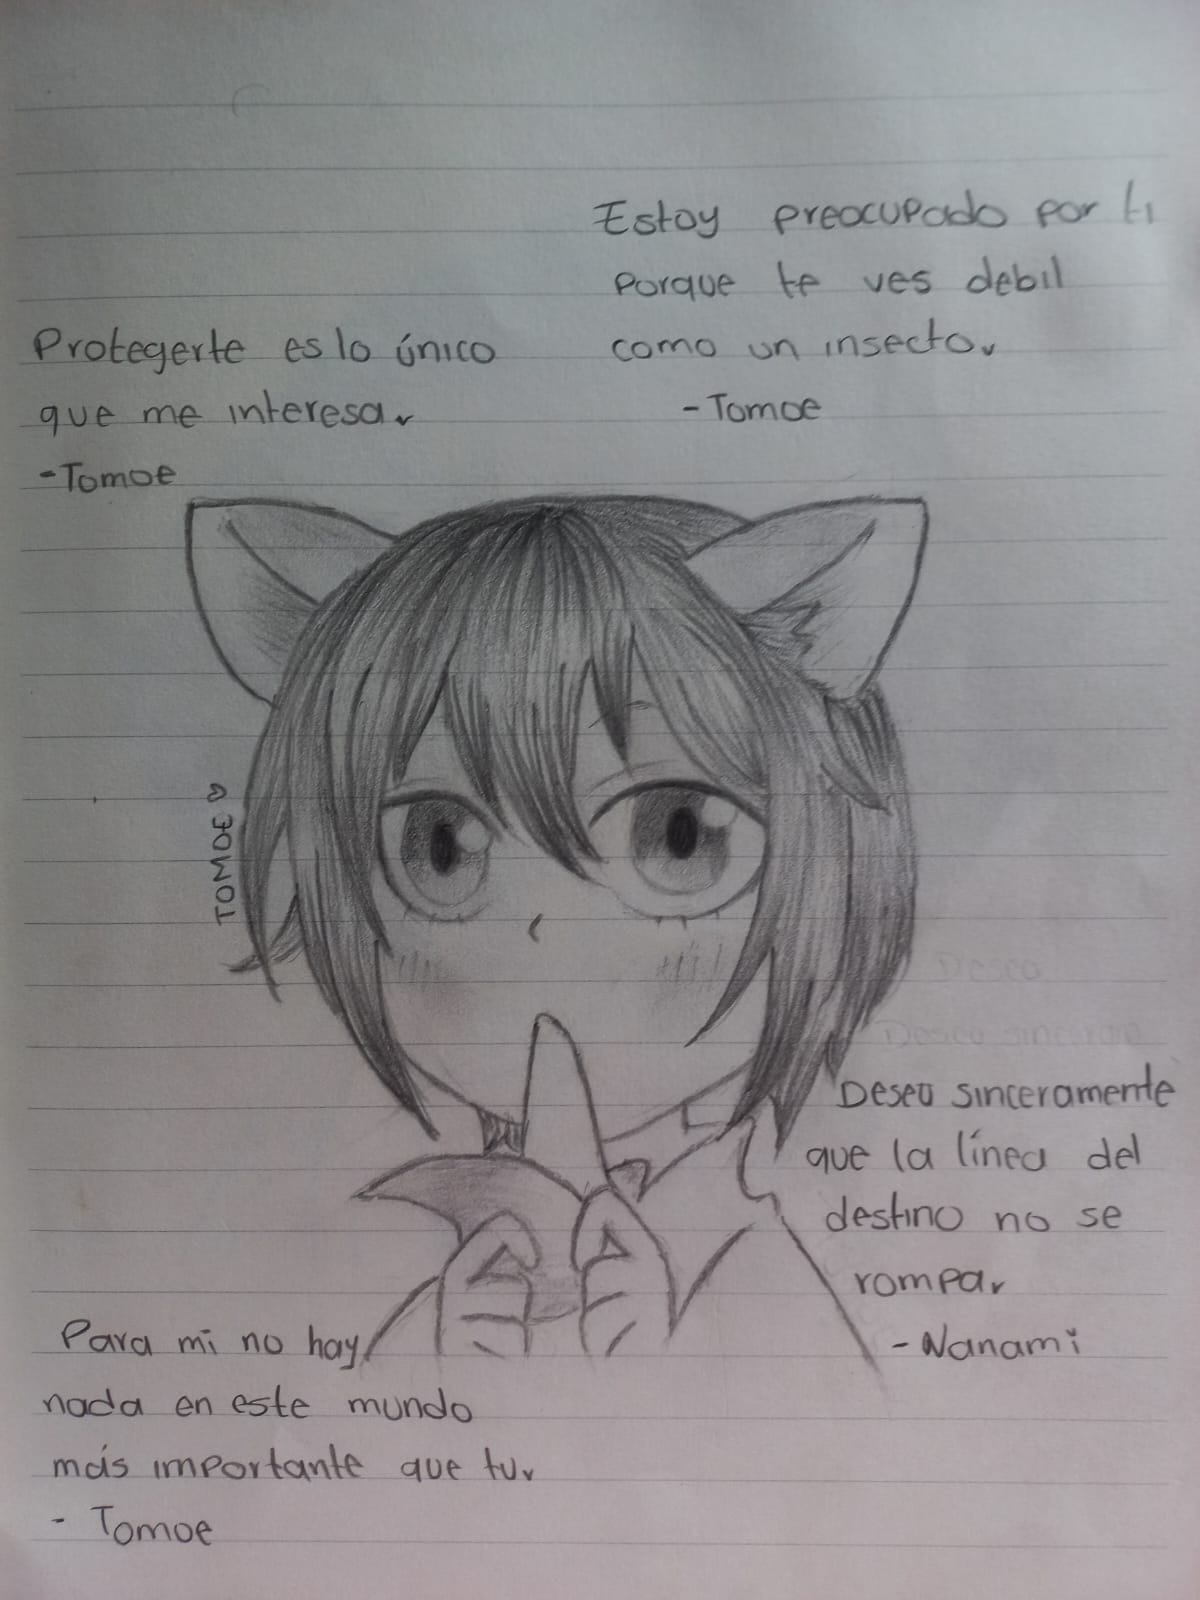 Estoy preocupado por ti
porque te ves debil
como un insecto.
- Tomoe
Protegerte es lo único
que me interesa.
- Tomoe
TOMOE ♡
Deseo
Deseo sincera
Deseo sinceramente
que la línea del
destino no se
rompa.
- Nanami
Para mi no hay
nada en este mundo
más importante que tu.
- Tomoe